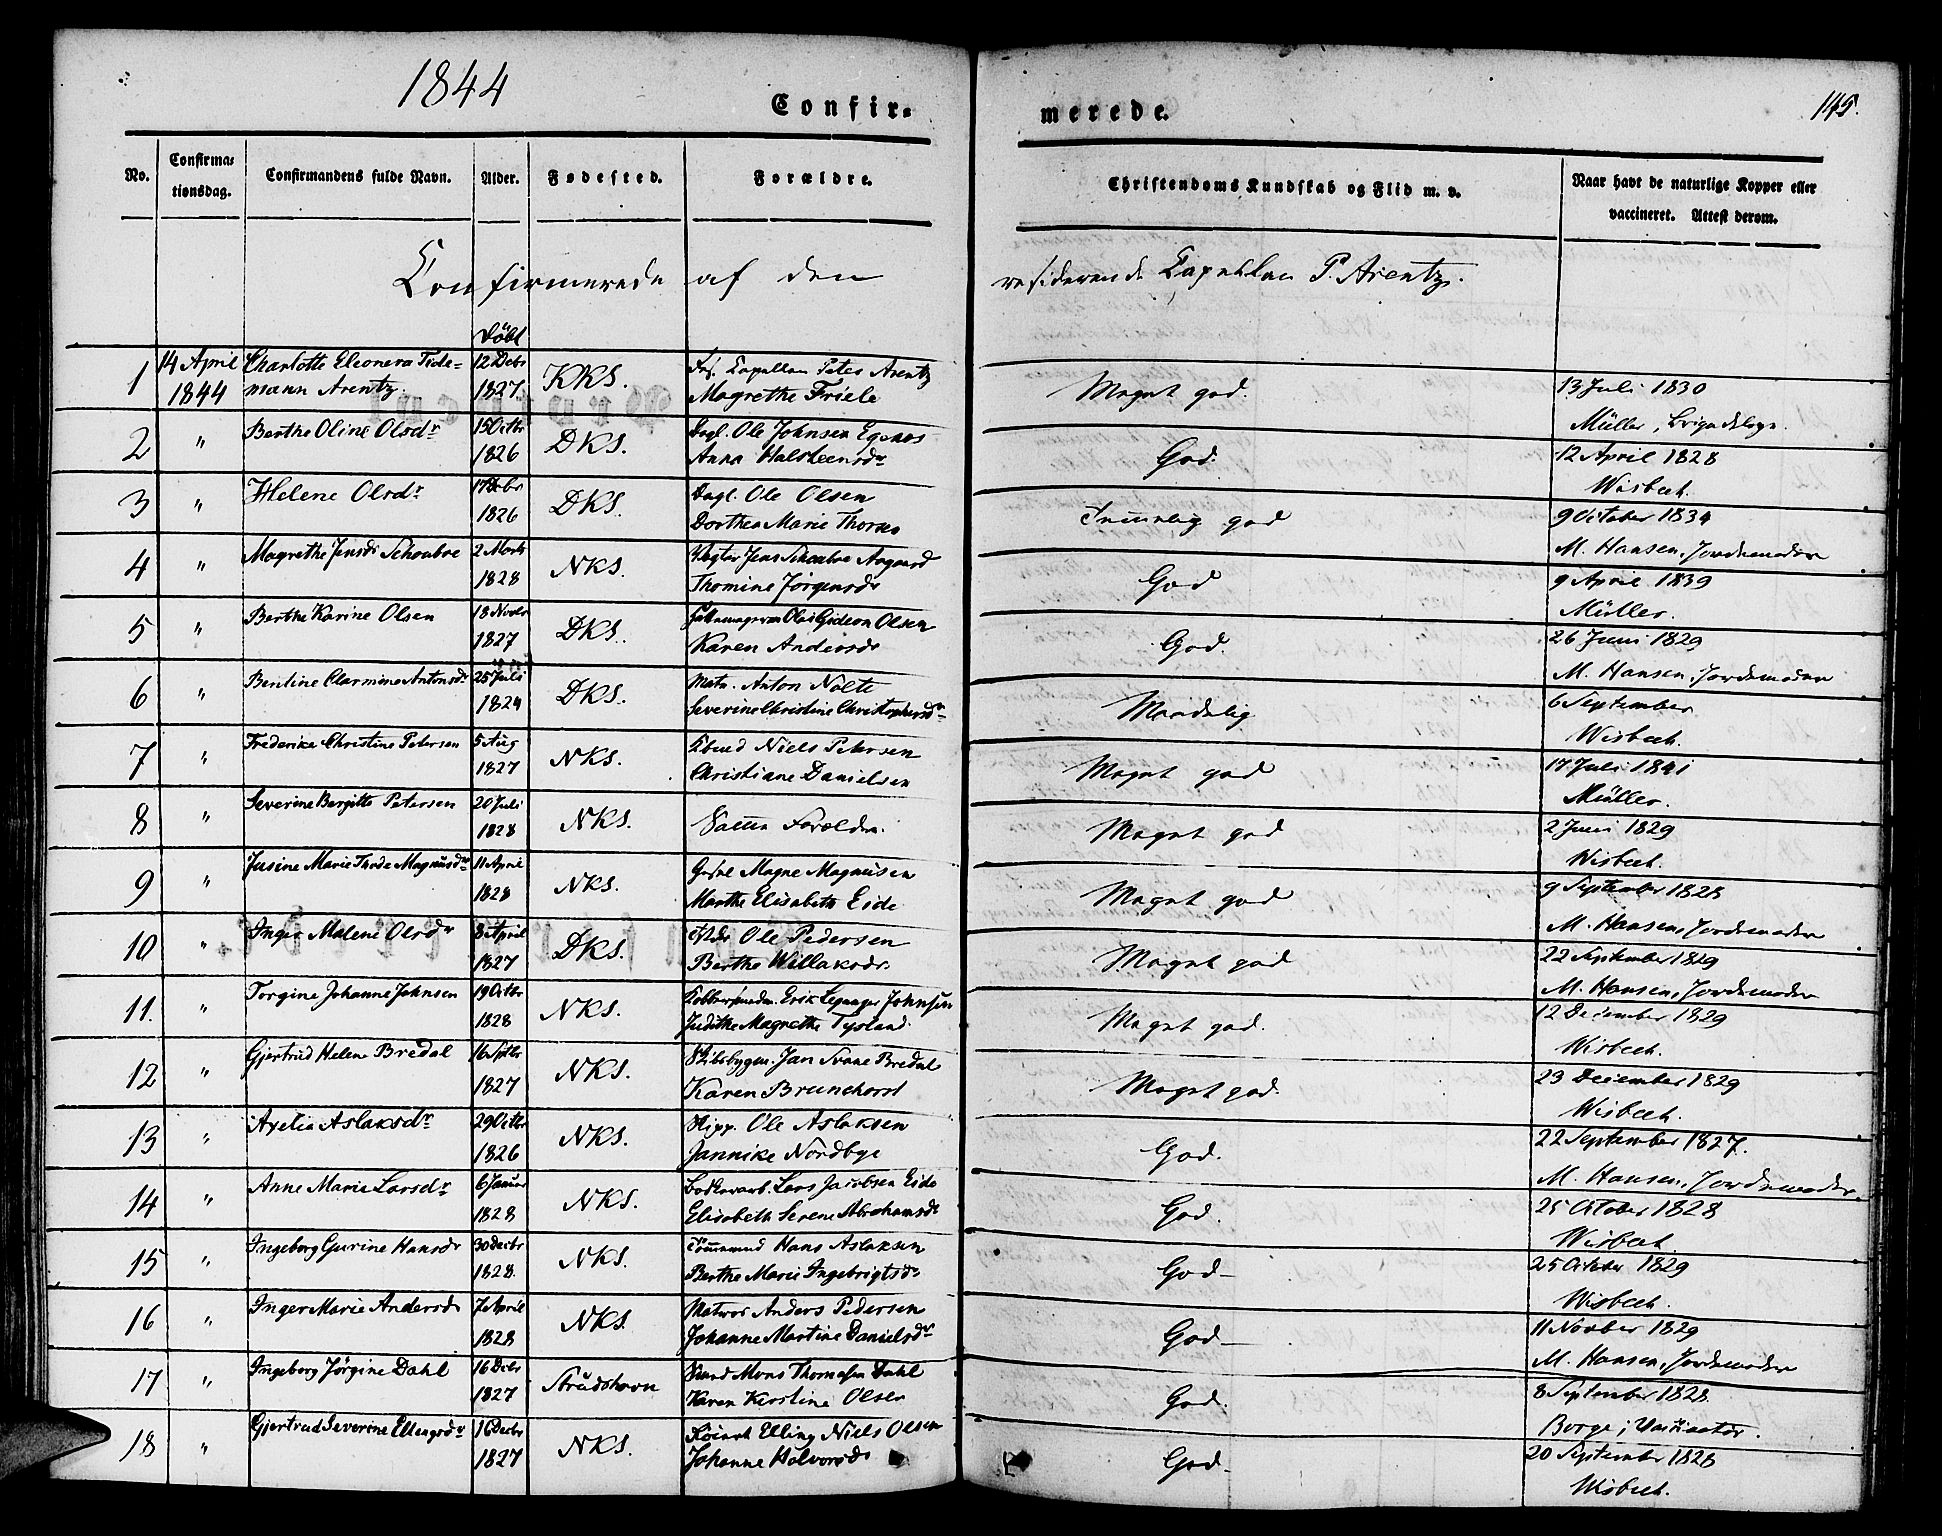 1844
Confir=
merede.
145.
No.
Confirma=
tionsdag.
Confirmandens fulde Navn.
Alder.
Fødested.
Forældre.
Christendoms Kundskab og Flid m. v.
Naar havt de naturlige Kopper eller
vaccineret. Attest derom.
Confirmerede af den residerende Capellan P. Arentz.
Döbt
1 14 April Charlotte Eleonora Tide= 12 Decbr KKS. Capellan Peter Arentz Meget god. 13 Juli 1830
1844 mann Arentz. 1827 Magrethe Friele Müller, Brigadelæge.
2 " Berthe Oline Olsdr 15 Octbr DKS. Dagl. Ole Johnsen Egenes God. 12 April 1828
1826 Anna Halsteensdr Wisbech.
3 " Helene Olsdr 17 DKS. Dagl. Ole Olsen Temmelig god 9 October 1834
1826 Dorthea Marie Thorsen M. Hansen, Jordemoder
4 " Magrethe Jensdr Schoubre 2 Marts NKS. Vægter Jens Schoubre Aagaard God 9 April 1839
1828 Thomine Jørgensdr Müller.
5 " Berthe Karine Olsen 18 Novbr DKS. Olai Gideon Olsen God. 26 Juni 1829
1827 Karen Andersdr M. Hansen, Jordemoder
6 " Bentine Clarmine Antonsdr 25 Juli DKS. Matr. Anton Nolte Maadelig 6 September
1824 Severine Christine Christophersdr Wisbech.
7 " Frederike Christine Petersen 5 Aug NKS. Niels Petersen Meget god 17 Juli 1841
1827 Christiane Danielsen Müller.
8 " Severine Bergitte Petersen 20 Juli NKS. Samme Forældre. Meget god 2 Juni 1829
1828 Wisbech.
9 " Jusine Marie Thode Magnusdr 11 April NKS. Magne Magnusen Meget god 9 September 1828
1828 Marthe Elisabeth Eide M. Hansen, Jordemoder
10 " Inger Malene Olsdr 8 April DKS. Ole Pedersen Meget god 22 September 1829
1827 Berthe Willaksdr. M. Hansen, Jordemoder
11. " Torgine Johanne Johnsen 19 Octbr NKS. Kobbersmedm. Erik Leganger Johnsen Meget god. 12 December 1829
1828 Judithe Magrethe Tysland. Wisbech.
12 " Gjertrud Helene Bredal 16 Septbr NKS. Skibsbygm. Jan Svane Bredal Meget god. 23 December 1829
1827 Karen Brunchorst Wisbech.
13 " Axelia Aslaksdr 29 Octbr NKS. Skipp. Ole Aslaksen God. 22 September 1827.
1826 Jannike Nordbye M. Hansen, Jordemoder
14 " Anne Marie Larsdr 6 Januar NKS. Bødkerarb. Lars Jacobsen Eide God. 25 October 1828
1828 Elisabeth Serene Abrahamsdr Wisbech.
15 " Ingeborg Gurine Hansdr 30 Decbr NKS. Tømmermd Hans Aslaksen God- 25 October 1829
1828. Berthe Marie Ingebrigtsdr Wisbech.
16 " Inger Marie Andersdr 7 April NKS. Matros Anders Pedersen God- 11 Novber 1829
1828 Johanne Martine Danielsdr M. Hansen, Jordemoder
17 " Ingeborg Jørgine Dahl 16 Decbr Strudshavn Mons Thomasen Dahl God. 8 September 1828.
1827 Karen Kirstine Olsen Borge, Vaccinatør.
18 " Gjertrud Severine Ellingsdr 16 Decbr NKS. Elling Niels Olsen God- 20 September 1828
1827 Johanne Halvorsdr Wisbech.